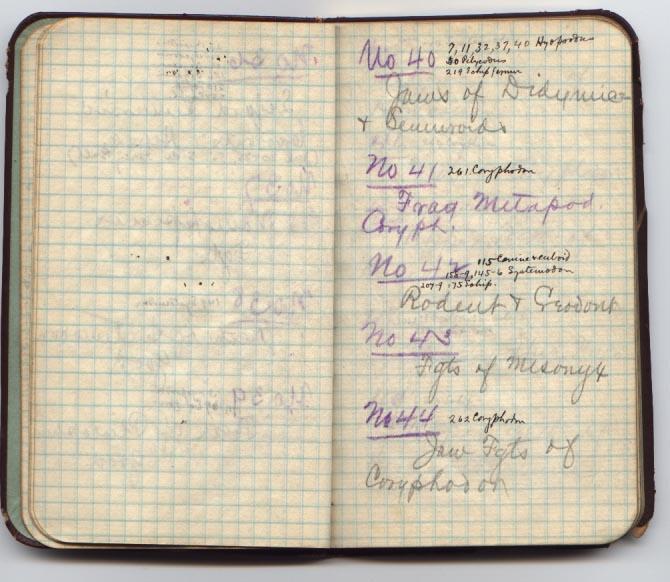 No 40 7, 11, 32, 37, 40 Hyopsodus
30 Pelycodus
219 Echip femur
Jaws of Didymic
+ Lemuroids
No 41 261 Coryphodon
Frag Metapod.
Coryph.
No 42 115 Canine + cuboid
158-9, 145-6 Systemodon
207-9, 175 Echip.
Rodent + Creodont
No 43
Fgts of Mesonyx
No 44 262 Coryphodon
Jaw Fgts of
Coryphodon